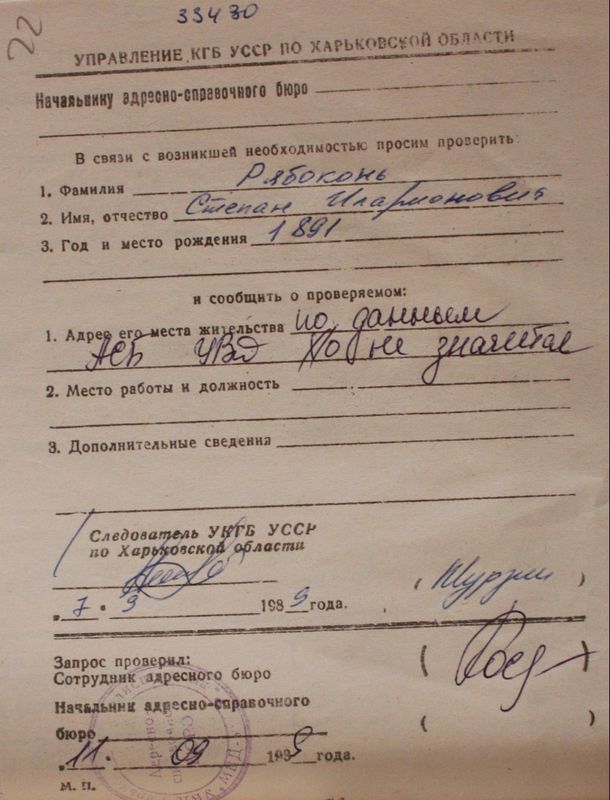 22
33430
УПРАВЛЕНИЕ КГБ УССР ПО ХАРЬКОВСКОЙ ОБЛАСТИ
Начальнику адресно-справочного бюро
В связи с возникшей необходимостью просим проверить:
1. Фамилия Рябоконь
2. Имя, отчество Степан Иларионович
3. Год и место рождения 1891
и сообщить о проверяемом:
1. Адрес его места жительства по данным
АСБ УВД не значится
2. Место работы и должность
3. Дополнительные сведения
Следователь УКГБ УССР
по Харьковской области
„ 7 " 9 1989 года.
( )
Запрос проверил:
Сотрудник адресного бюро ( )
Начальник адресно-справочного
бюро ( )
„ 11. 09 1989 года.
М. П.